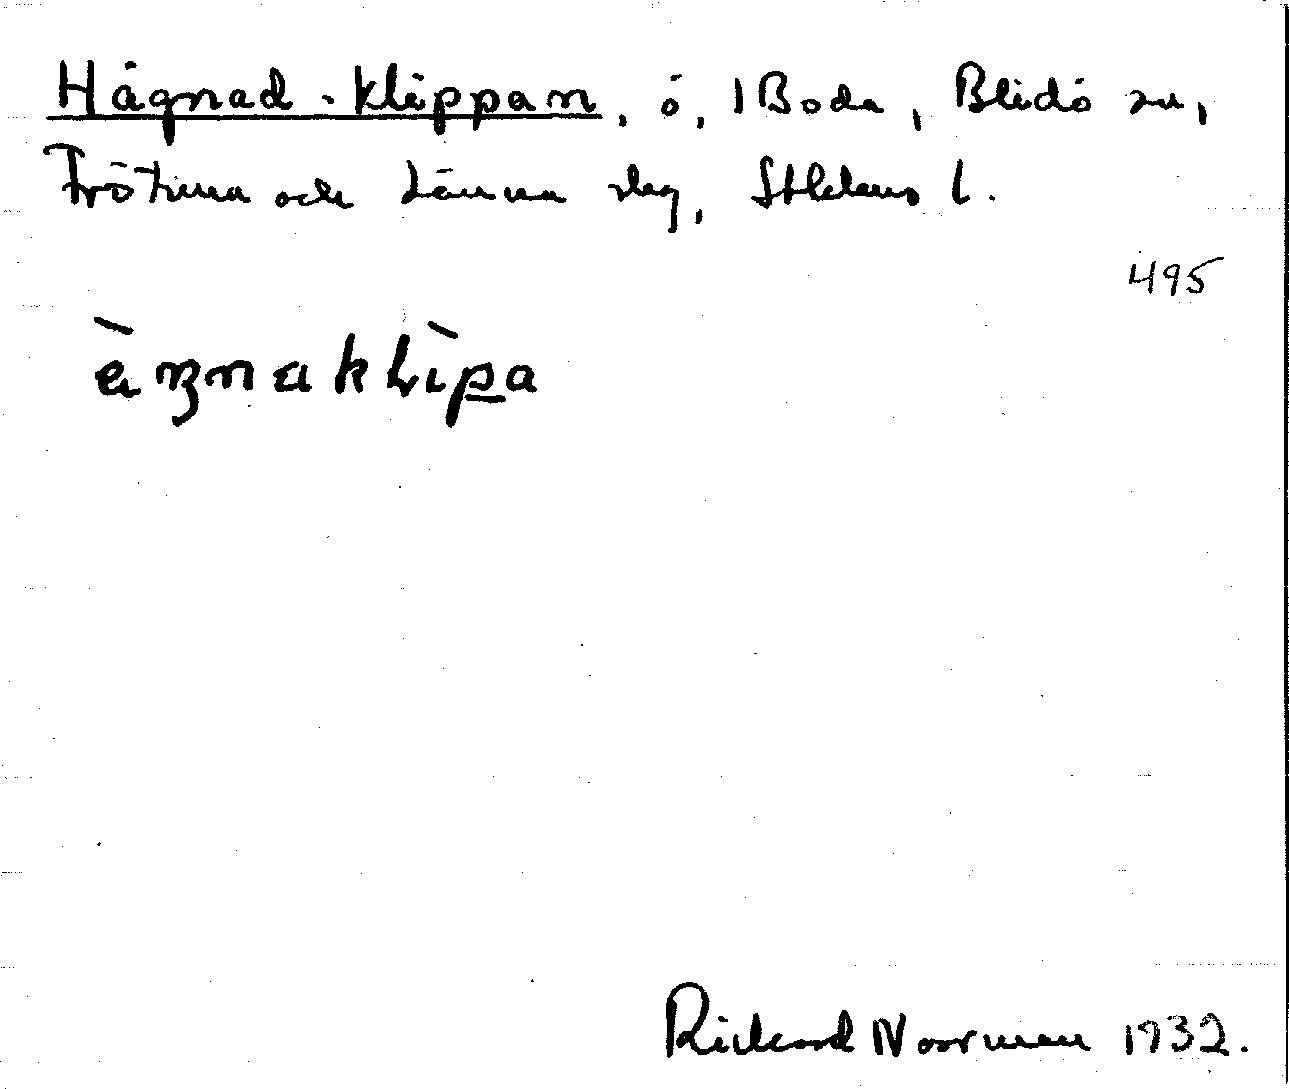 Hägnad-klippan, ö, 1 Boda, Blidö sn,
Frötuna och Länna slg, Sthlms l.
495
àŋnaklìpa
Rickard Noorman 1932.